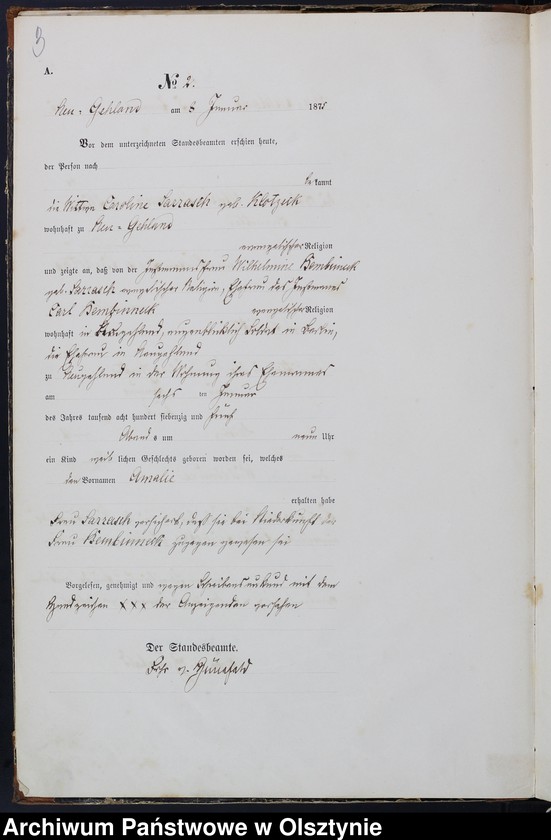 3
A.
No 2.
Neu-Gehland am 8 Januar 1875
Vor dem unterzeichneten Standesbeamten erschien heute,
der Person nach
bekannt
die Wittwe Caroline Sarrasch geb. Klotzeck
wohnhaft zu Neu-Gehland
evangelischer Religion
und zeigte an, daß von der Instmannsfrau Wilhelmine Bembinneck
geb. Sarrasch evangelischer Religion, Ehefrau des Instmannes
Carl Bembinneck evangelischer Religion
wohnhaft in gehland, augenblicklich Soldat in Berlin,
die Ehefrau in Neugehland
zu Neugehland in der Wohnung ihres Ehemannes
am sechs ten Januar
des Jahres tausend acht hundert siebenzig und fünf
Abends um neun Uhr
ein Kind weiblichen Geschlechts geboren worden sei, welches
den Vornamen Amalie
erhalten habe
Frau Sarrasch versichert, daß sie bei Niederkunft der
Frau Bembinneck zugegen gewesen sei
Vorgelesen, genehmigt und wegen Schreibensunkunde mit dem
Handzeichen XXX der Anzeigenden versehen
Der Standesbeamte.
v.
Archiwum Państwowe w Olsztynie